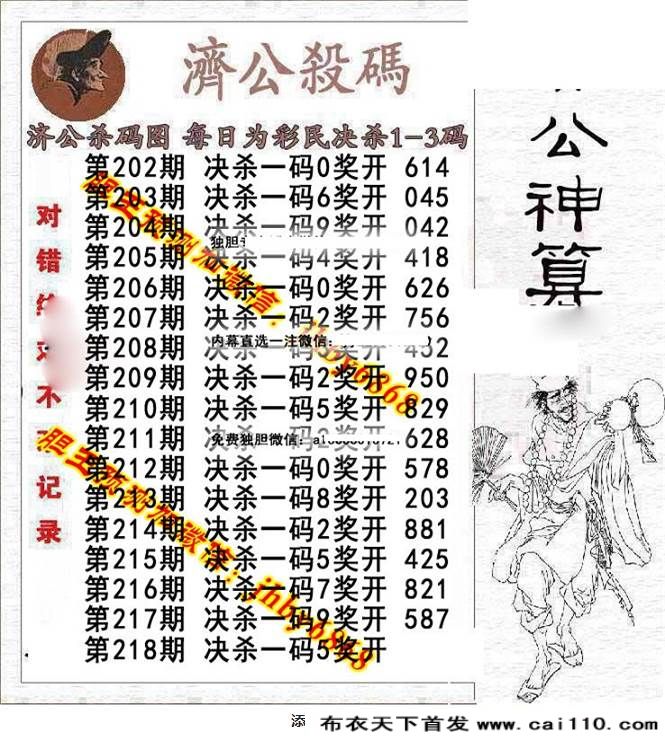 濟公殺碼
济公杀码图 每日为彩民决杀1-3码
第202期 决杀一码0奖开 614
第203期 决杀一码6奖开 045
第204期 决杀一码9奖开 042
独胆
第205期 决杀一码4奖开 418
第206期 决杀一码0奖开 626
第207期 决杀一码2奖开 756
内幕直选一注微信:
第208期 一码 奖开 452
第209期 决杀一码2奖开 950
第210期 决杀一码5奖开 829
第211期 决杀一码2奖开 628
免费独胆微信:
第212期 决杀一码0奖开 578
第213期 决杀一码8奖开 203
第214期 决杀一码2奖开 881
第215期 决杀一码5奖开 425
第216期 决杀一码7奖开 821
第217期 决杀一码9奖开 587
第218期 决杀一码5奖开
对错 不 记录
胆王预测加微信: jhby6868
胆王预测加微信: jhby6868
公神算
添
布衣天下首发 www.cai110.com